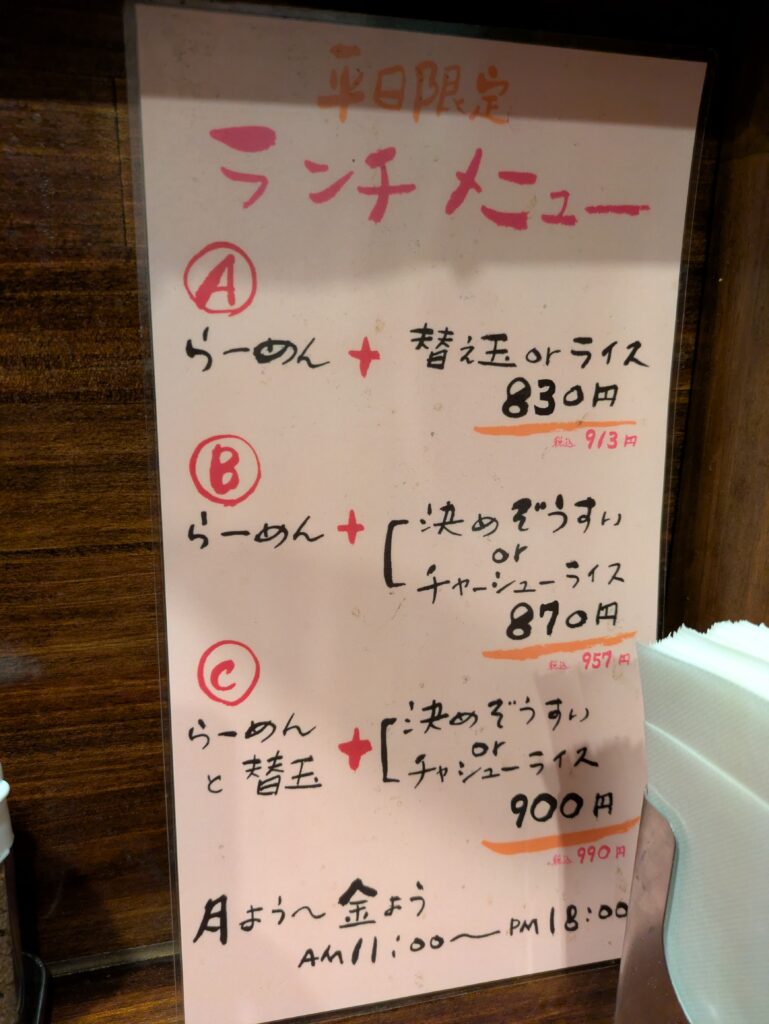 平日限定
ランチメニュー
A
らーめん + 替え玉 or ライス
830円
税込 913円
B
らーめん + 決めぞうすい
or
チャーシューライス
870円
税込 957円
C
らーめん
と替玉 + 決めぞうすい
or
チャシューライス
900円
税込 990円
月よう〜金よう
AM11:00〜PM18:00